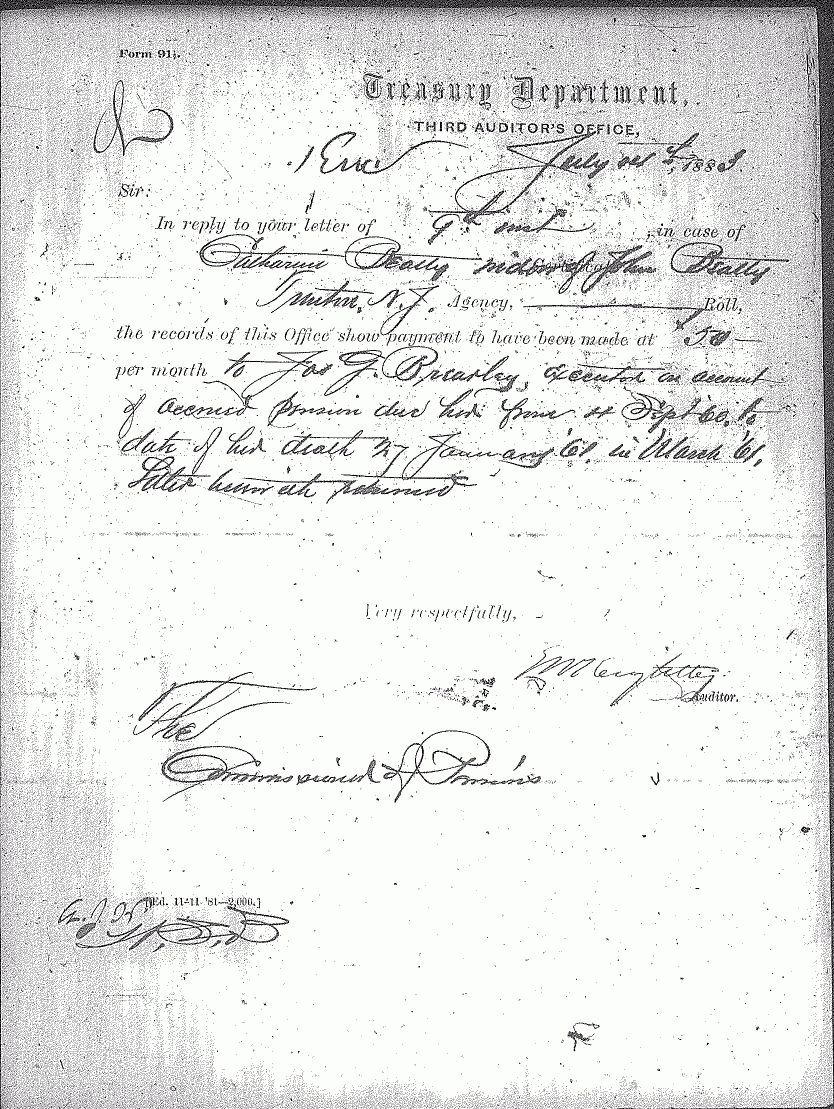 Form 91½.
Treasury Department,
THIRD AUDITOR'S OFFICE,
July 1883.
Sir:
In reply to your letter of 9th inst , in case of
Catharine Beatty widow of John Beatty
Trenton, N.J. Agency, Roll,
the records of this Office show payment to have been made at $50
per month to Jos G. Brearley, executor on account
of accrued pension due her from 4 Sept 60, to
date of her death 27 January '61, in March '61.
Letter herewith returned
Very respectfully,
Auditor.
The
Commissioner of Pensions
[Ed. 11-11-'81—2,000.]